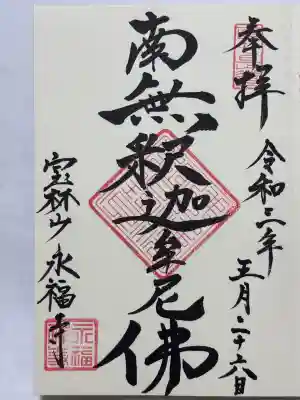 奉拝
令和三年
正月二十六日
南無釈迦牟尼佛
宝林山永福寺